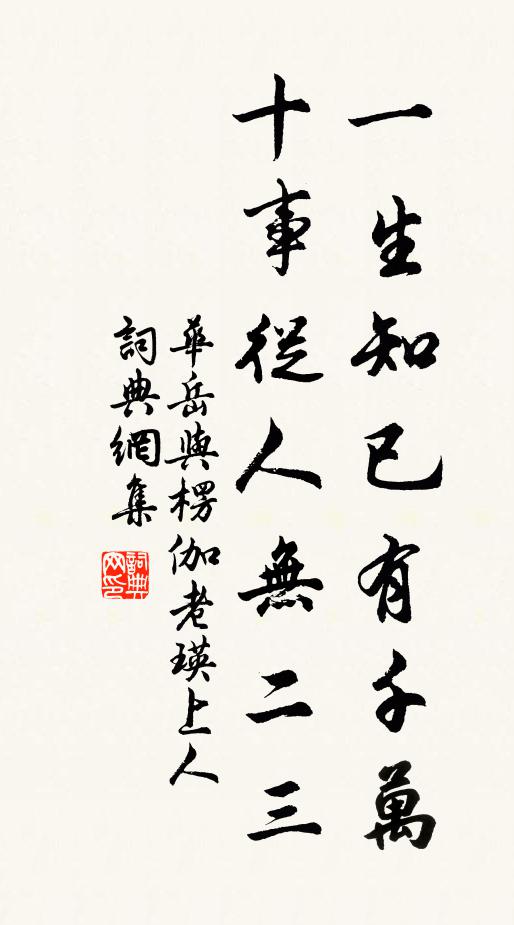 一生知已有千萬
十事從人無二三
華岳與楞伽老瑛上人
詞典網集
詞典網印